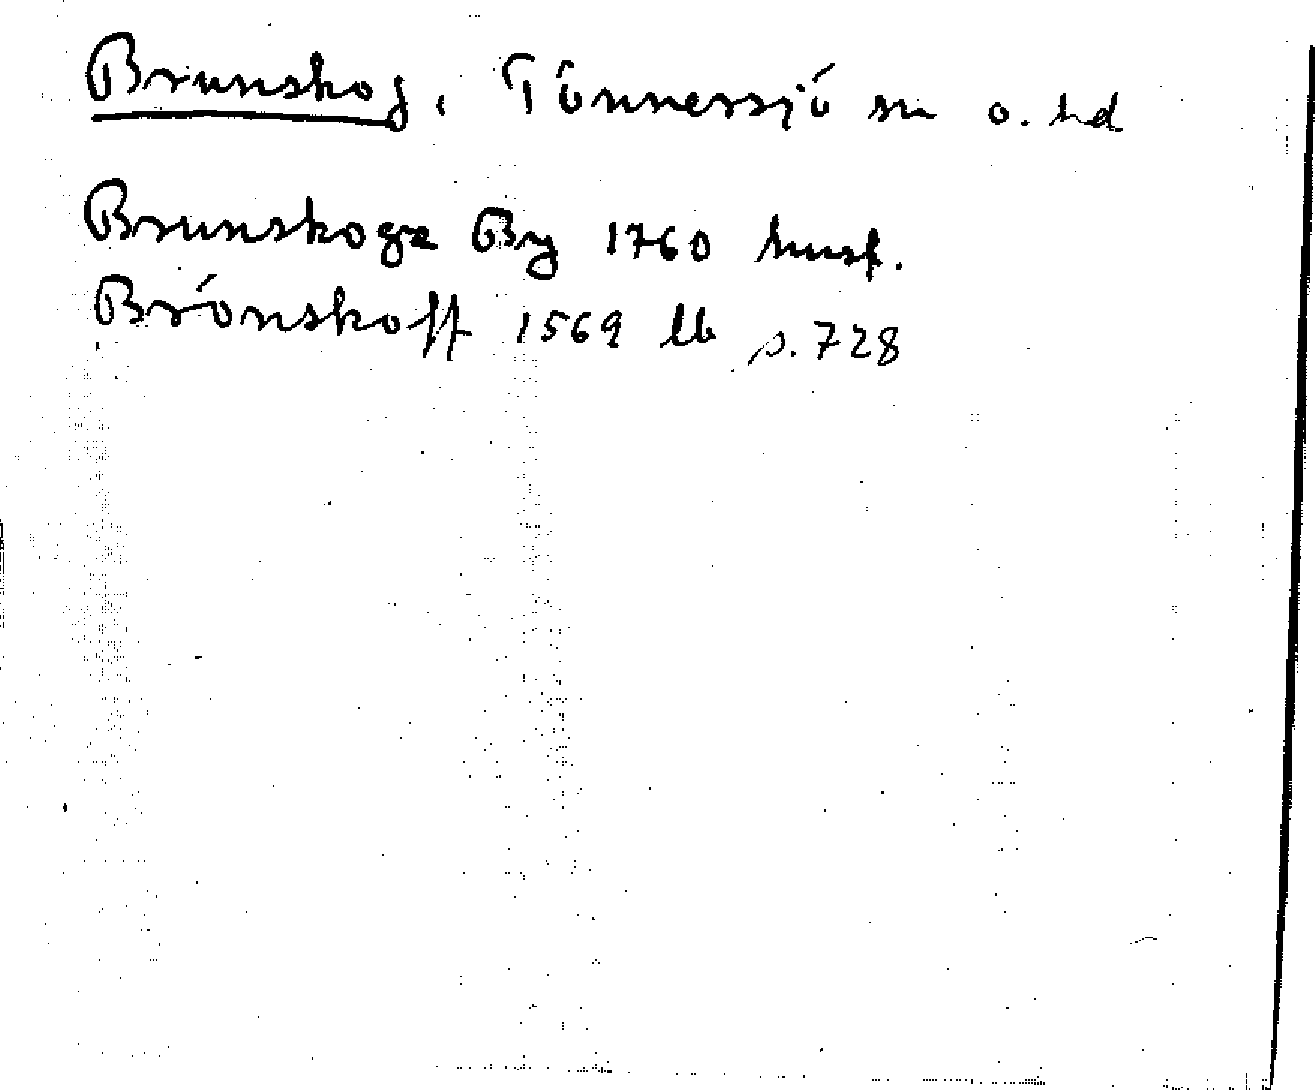 Brunskog, Tönnersjö sn o. hd
Brunskoga By 1760 husf.
Brönskoff 1569 lb s. 728